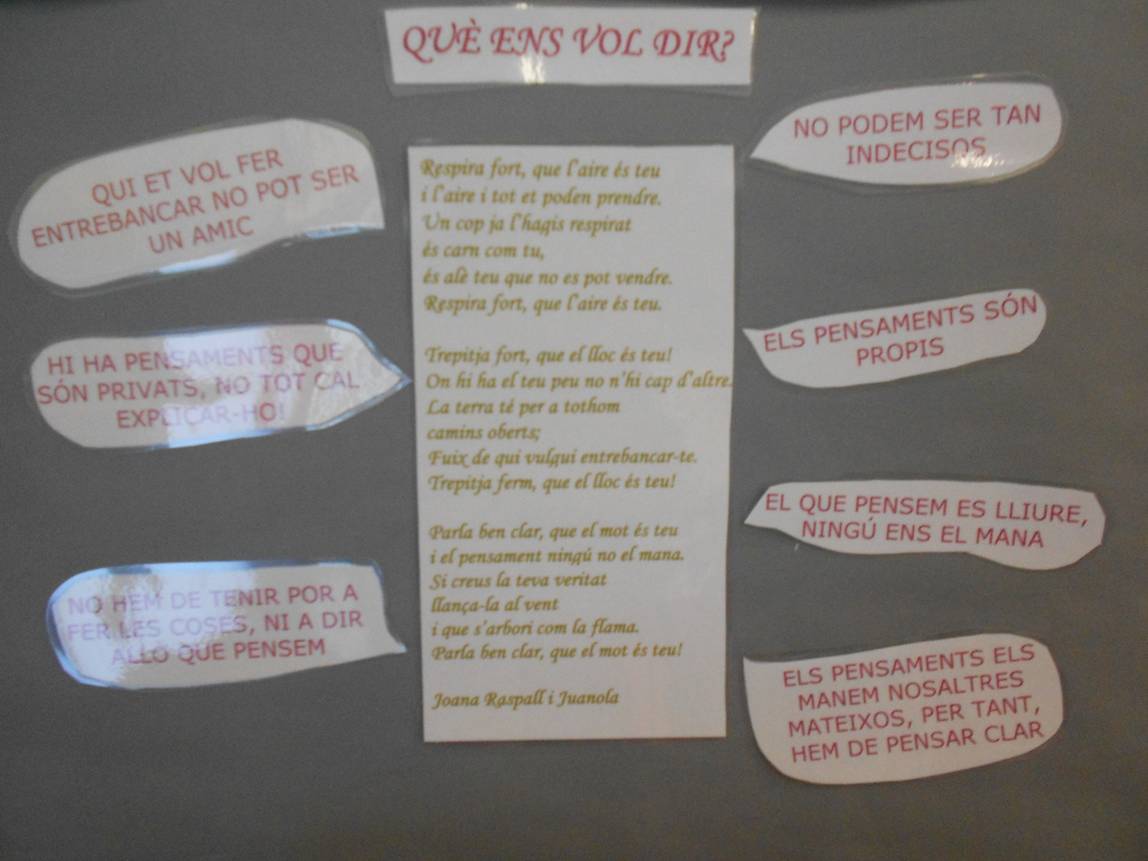 QUÈ ENS VOL DIR?
QUI ET VOL FER
ENTREBANCAR NO POT SER
UN AMIC
HI HA PENSAMENTS QUE
SÓN PRIVATS, NO TOT CAL
EXPLICAR-HO!
NO HEM DE TENIR POR A
FER LES COSES, NI A DIR
ALLO QUE PENSEM
Respira fort, que l'aire és teu
i l'aire i tot et poden prendre.
Un cop ja l'hagis respirat
és carn com tu,
és alè teu que no es pot vendre.
Respira fort, que l'aire és teu.
Trepitja fort, que el lloc és teu!
On hi ha el teu peu no n'hi cap d'altre.
La terra té per a tothom
camins oberts;
Fuix de qui vulgui entrebancar-te.
Trepitja ferm, que el lloc és teu!
Parla ben clar, que el mot és teu
i el pensament ningú no el mana.
Si creus la teva veritat
llança-la al vent
i que s'arbori com la flama.
Parla ben clar, que el mot és teu!
Joana Raspall i Juanola
NO PODEM SER TAN
INDECISOS
ELS PENSAMENTS SÓN
PROPIS
EL QUE PENSEM ES LLIURE,
NINGÚ ENS EL MANA
ELS PENSAMENTS ELS
MANEM NOSALTRES
MATEIXOS, PER TANT,
HEM DE PENSAR CLAR